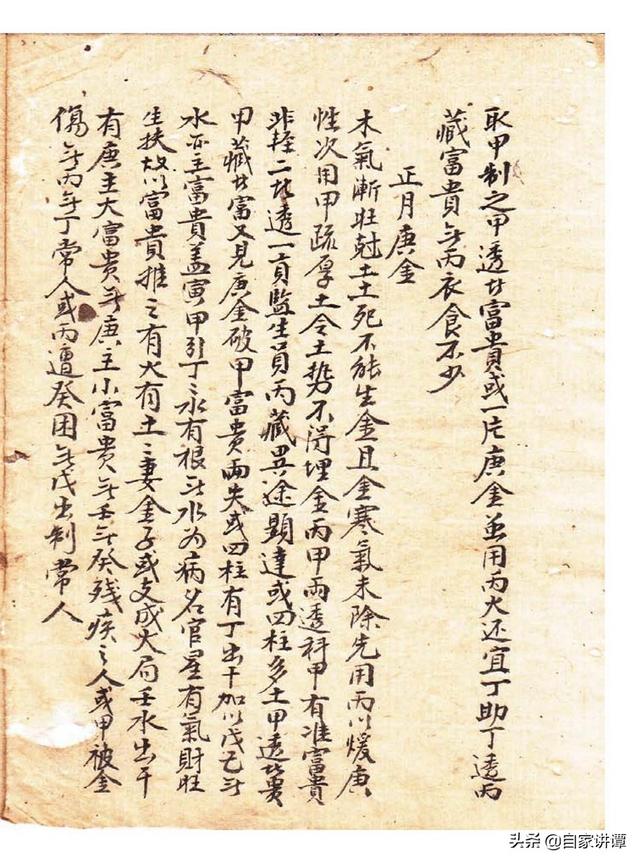 取甲制之甲透廿富貴或一片庚金並用丙火还宜丁助丁透丙
藏富貴无丙衣食不少
正月庚金
木氣漸旺尅土土死不能生金且金寒氣未除先用丙以煖庚
性次用甲疏厚土令土勢不淂埋金丙甲兩透科甲有准富貴
非輕二廿透一貢監生員丙藏異途顕達或四柱多土甲透廿貴
甲藏廿富又見庚金破甲富貴兩失或四柱有丁出干加以戊己无
水亦主富貴盖寅甲引丁丁永有根无水為病名官星有氣財旺
生扶故以富貴推之有火有土土妻金子或支成火局壬水出干
有庚主大富貴无庚主小富貴无壬无癸残疾之人或甲被金
傷无丙无丁常人或丙遭癸困无戊出制常人
头条 @自家讲谭